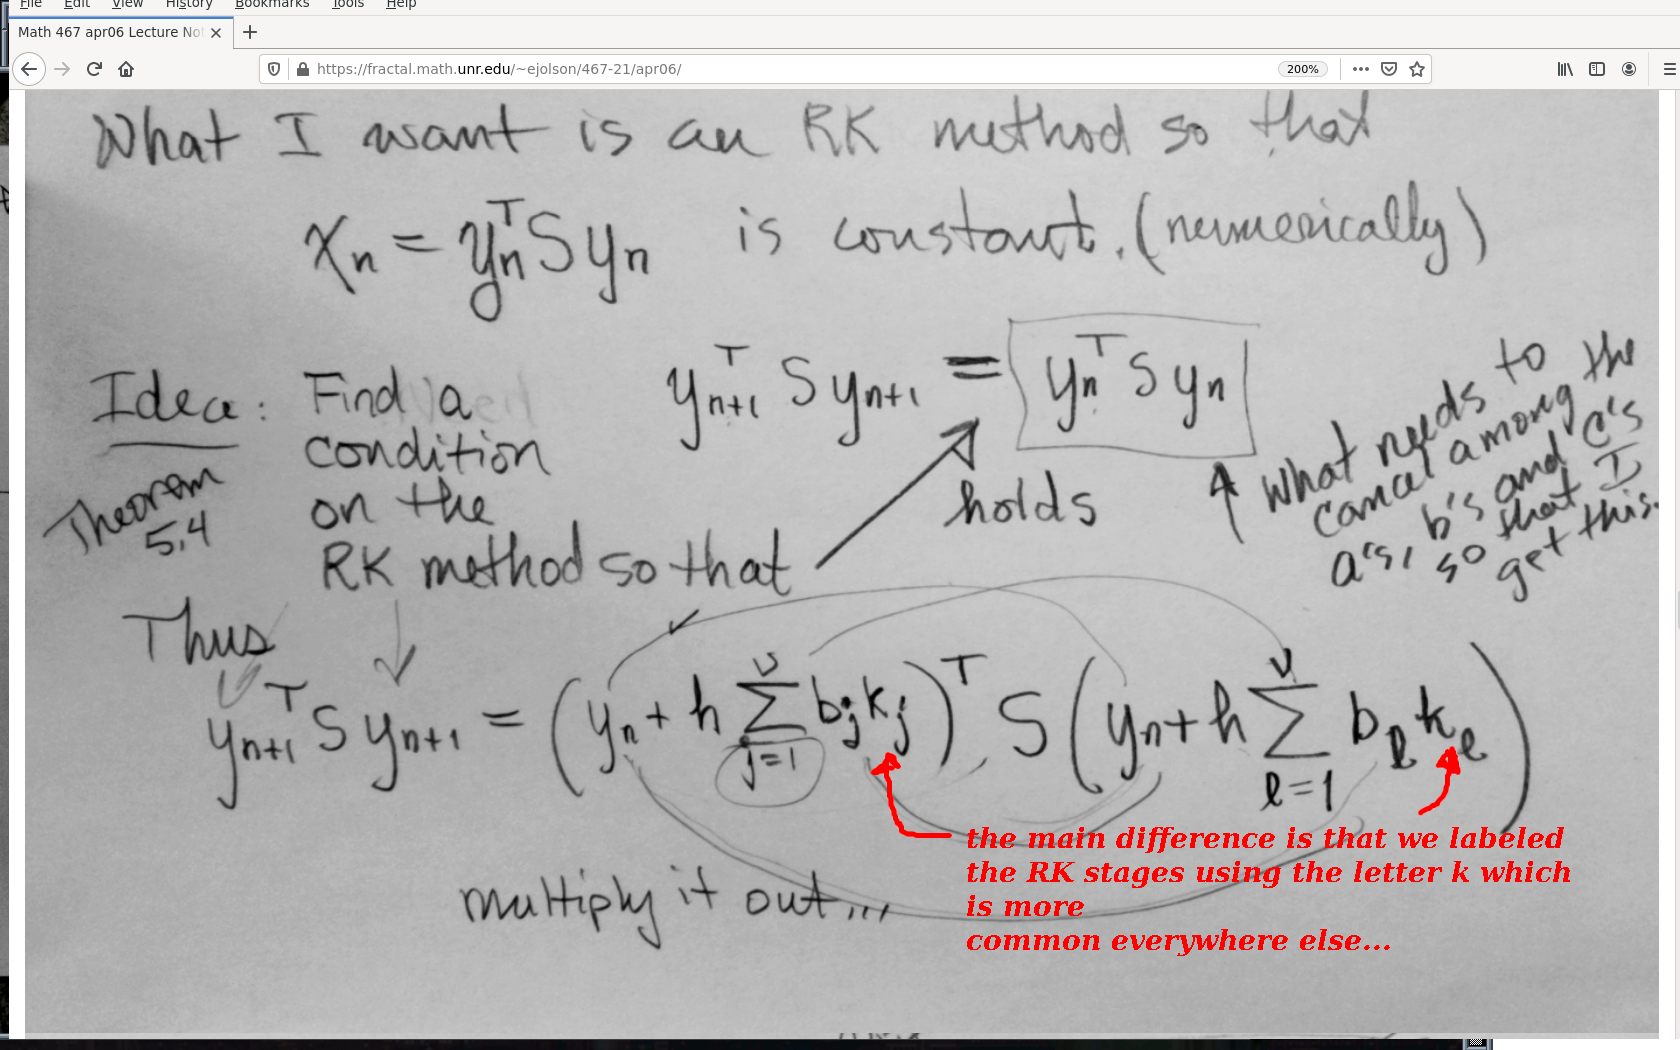 File Edit View History Bookmarks Tools Help
Math 467 apr06 Lecture No
https://fractal.math.unr.edu/~ejolson/467-21/apr06/ 200%
What I want is an RK method so that
xₙ = yₙᵀ S yₙ is constant. (numerically)
Idea: Find a condition on the RK method so that
yₙ₊₁ᵀ S yₙ₊₁ = yₙᵀ S yₙ
holds
Theorem 5.4
What needs to
cancel among the
a's, b's and c's
so that I
get this.
Thus
yₙ₊₁ᵀ S yₙ₊₁ = (yₙ + h ∑_{j=1}^{ν} b_j k_j)ᵀ S (yₙ + h ∑_{l=1}^{ν} b_l k_l)
multiply it out...
the main difference is that we labeled
the RK stages using the letter k which
is more
common everywhere else...